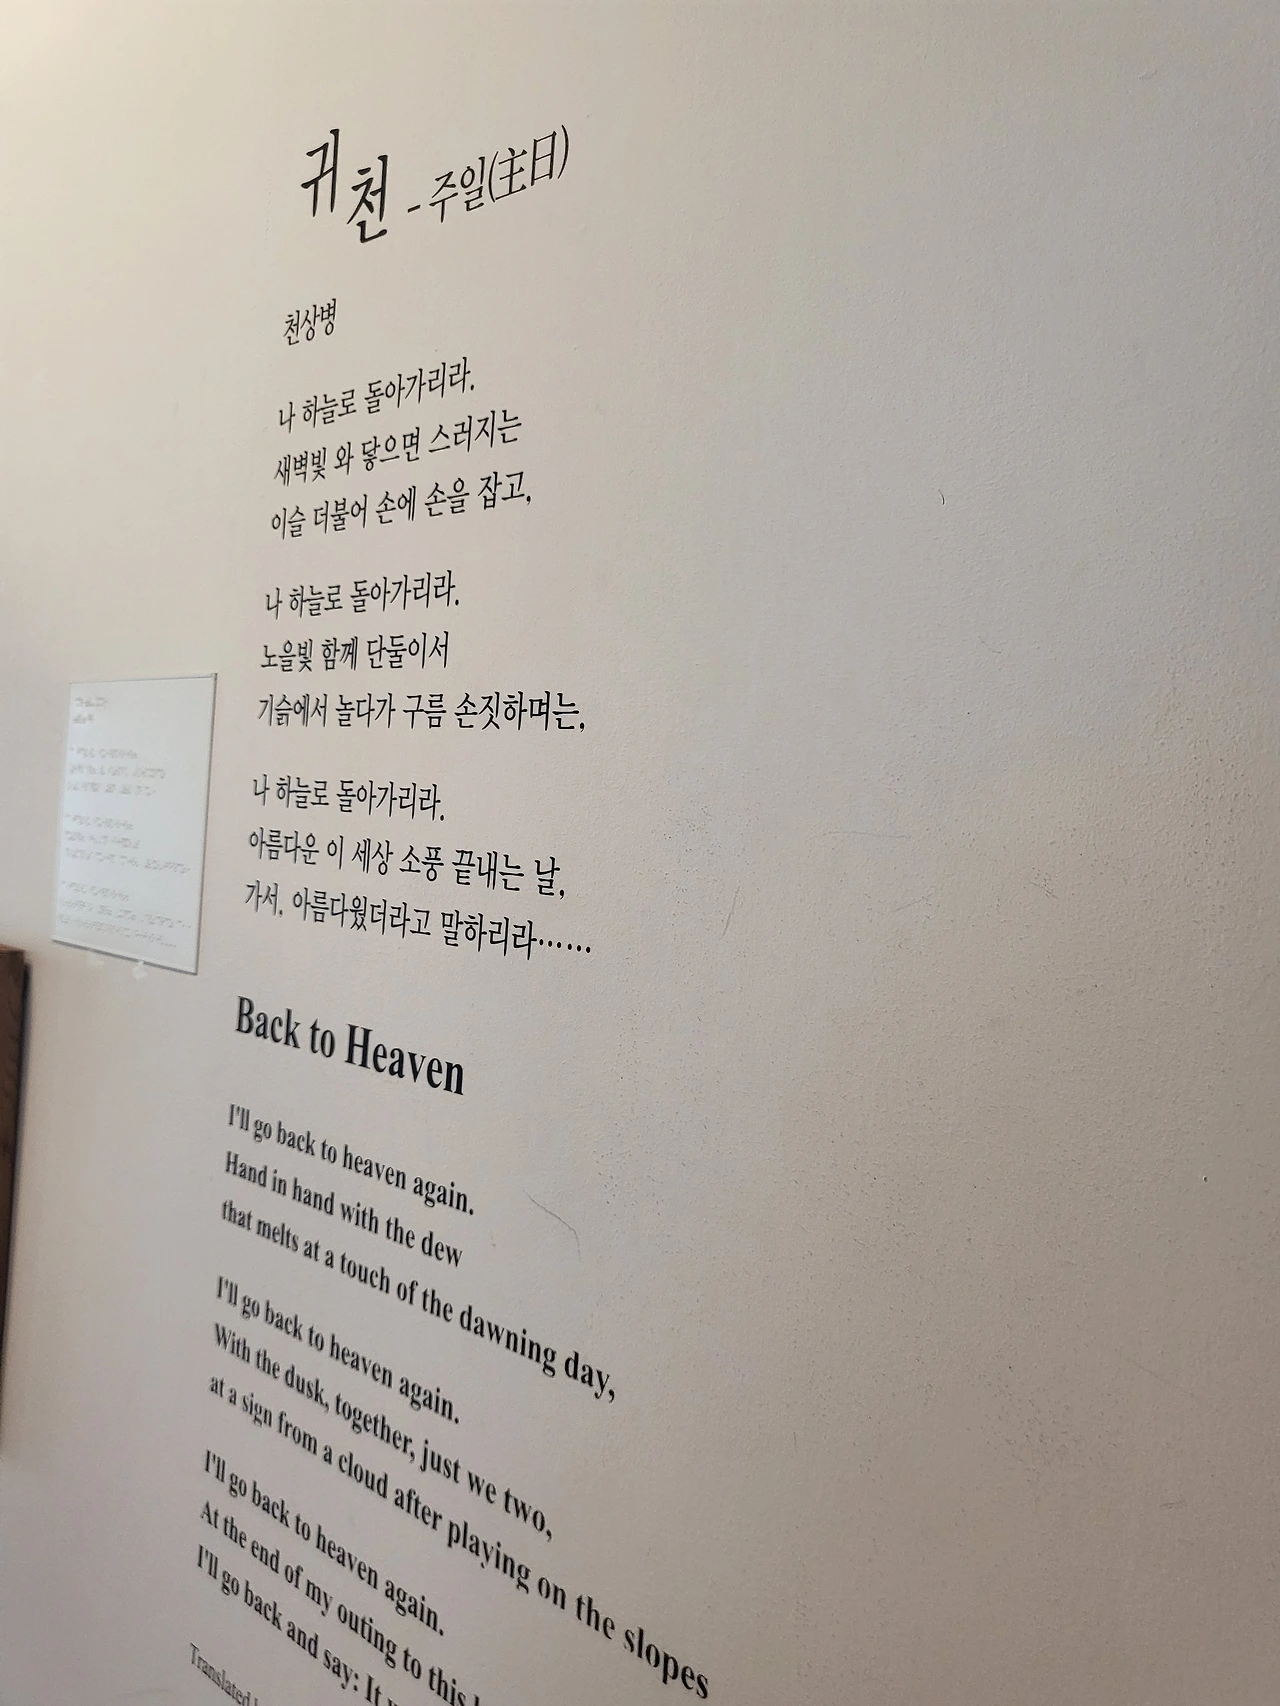 귀천 - 주일(主日)
천상병
나 하늘로 돌아가리라.
새벽빛 와 닿으면 스러지는
이슬 더불어 손에 손을 잡고,
나 하늘로 돌아가리라.
노을빛 함께 단둘이서
기슭에서 놀다가 구름 손짓하며는,
나 하늘로 돌아가리라.
아름다운 이 세상 소풍 끝내는 날,
가서. 아름다웠더라고 말하리라······
Back to Heaven
I'll go back to heaven again.
Hand in hand with the dew
that melts at a touch of the dawning day,
I'll go back to heaven again.
With the dusk, together, just we two,
at a sign from a cloud after playing on the slopes
I'll go back to heaven again.
At the end of my outing to this
I'll go back and say: It
Translated